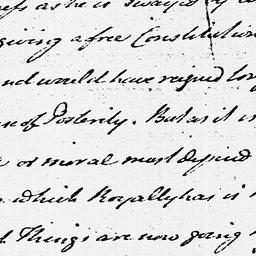 as he is swayed by
giving a free Constitution
and would have reigned long
of Posterity. But as it is
or moral must depend
which Royalty has is
Things are now going